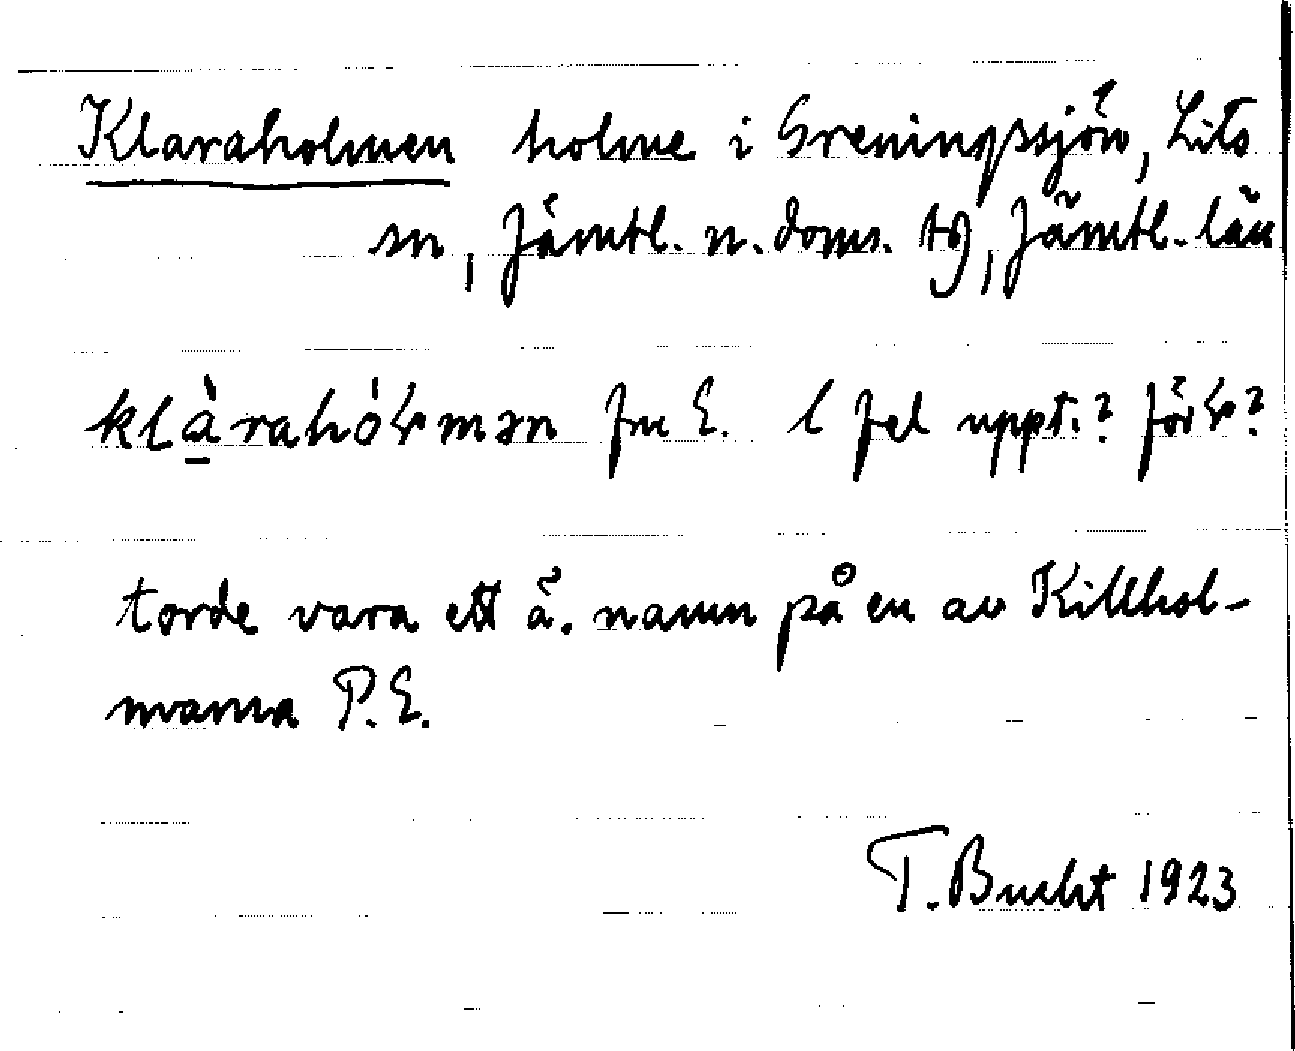 Klaraholmen holme i Greningssjön, Lits
sn, Jämtl. n. doms. tg, Jämtl. län
klàrahóɫmən fru E. l fel uppt.? för ɫ?
torde vara ett ä. namn på en av Killhol-
marna P. E.
T. Bucht 1923